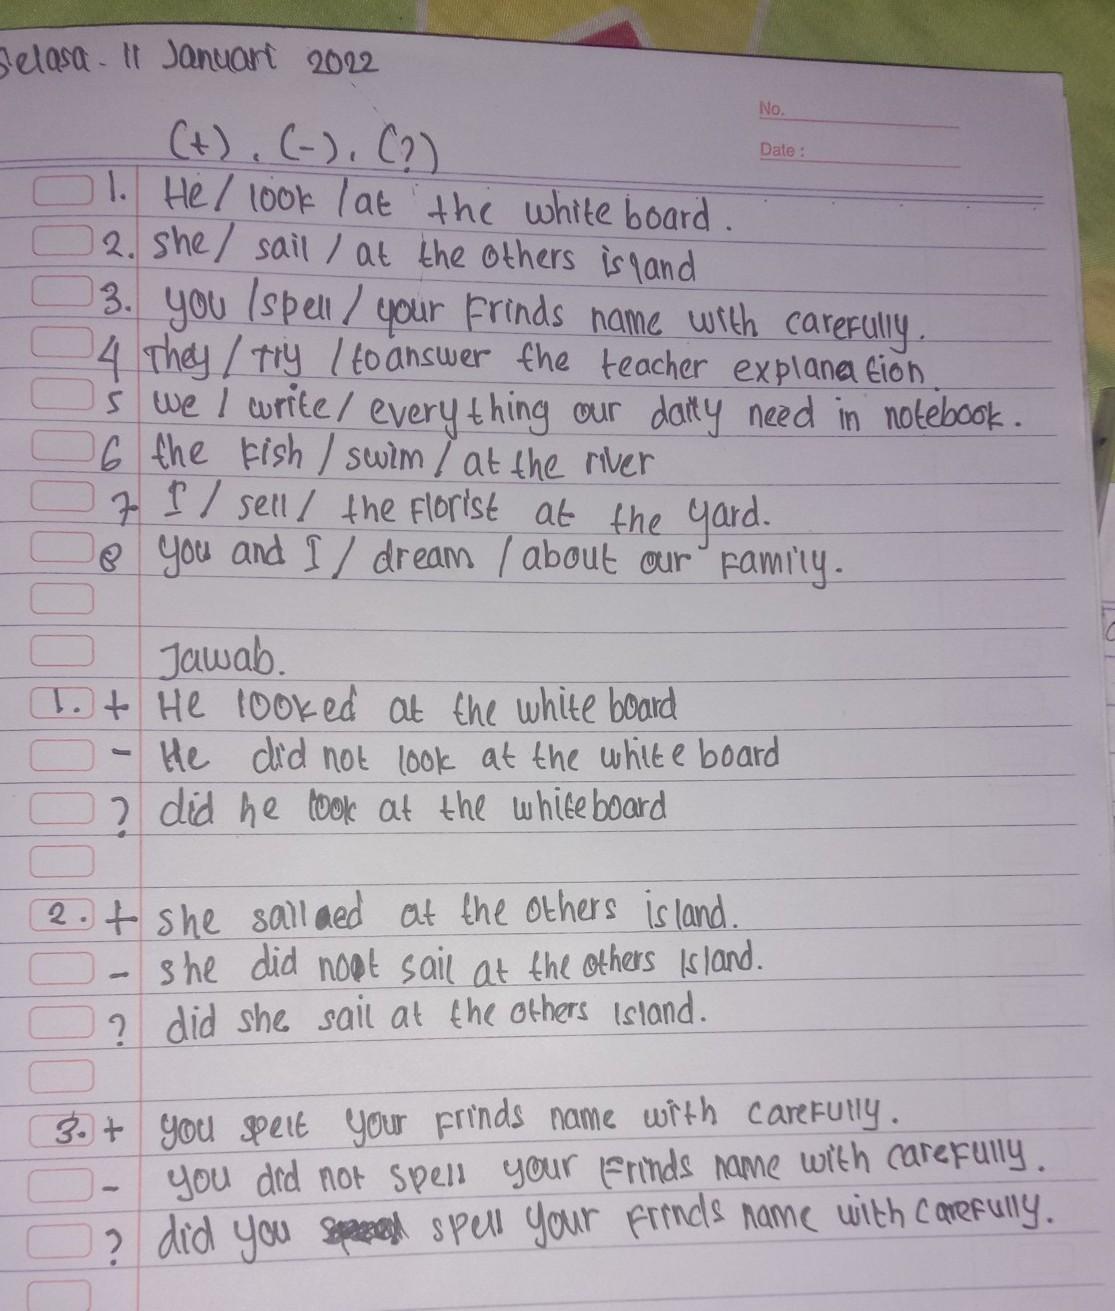 Selasa - 11 Januari 2022
No.
Date :
(+), (-), (?)
1. He / look / at the white board.
2. she / sail / at the others island
3. you / spell / your Frinds name with carefully.
4 They / try / to answer the teacher explanation.
5 we / write / everything our daily need in notebook.
6 the Fish / swim / at the river
7 I / sell / the Florist at the yard.
8 you and I / dream / about our Family.
Jawab.
1. + He looked at the white board
- He did not look at the white board
? did he look at the whiteboard
2. + she sailed at the others island.
- she did not sail at the others Island.
? did she sail at the others Island.
3. + you spelt your Frinds name with carefully.
- you did not spell your Frinds name with carefully.
? did you spell your Frinds name with carefully.